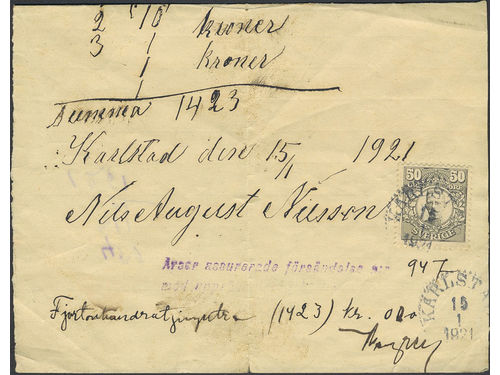 2 10 kroner
3 1 kroner
1
1
Summa 1423
Karlstad den 15/1 1921
Nils August Nilsson
50 50
SVERIGE
KARLSTA
1921
Avser assurerade försändelse nr
947
med
(1423) kr. 00
KARLSTA
15
1
1921